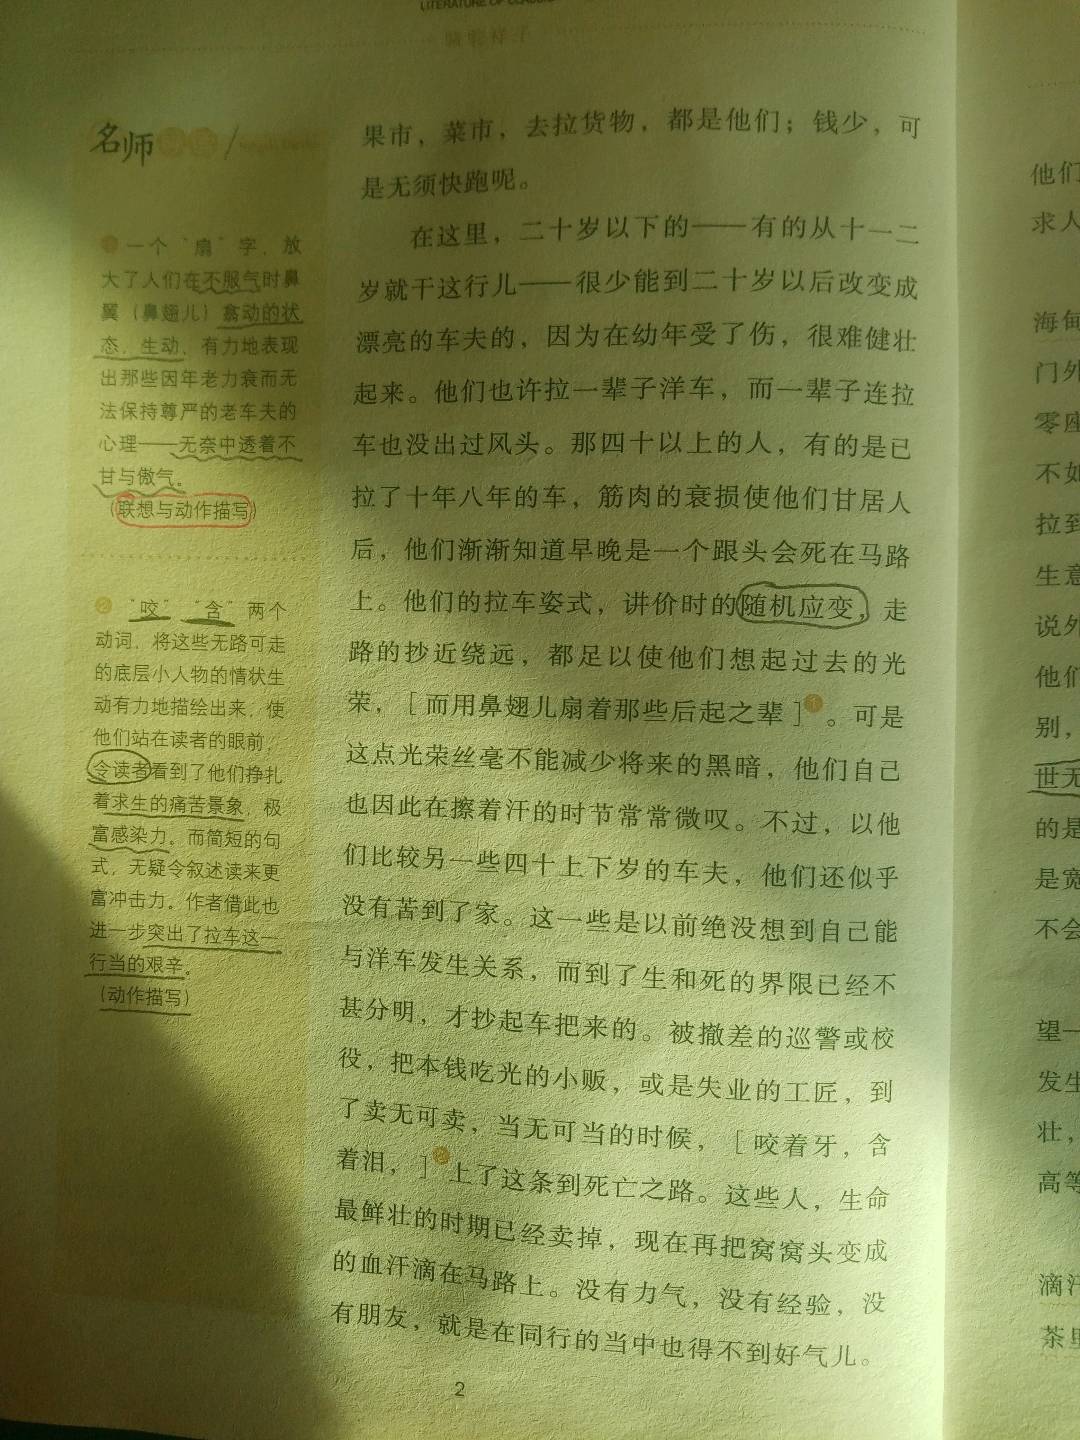 LITERATURE OF CLASSIC
骆驼祥子
名师
一个“扇”字，放
大了人们在不服气时鼻
翼（鼻翅儿）翕动的状
态，生动、有力地表现
出那些因年老力衰而无
法保持尊严的老车夫的
心理——无奈中透着不
甘与傲气。
（联想与动作描写）
❷“咬”“含”两个
动词，将这些无路可走
的底层小人物的情状生
动有力地描绘出来，使
他们站在读者的眼前，
令读者看到了他们挣扎
着求生的痛苦景象，极
富感染力。而简短的句
式，无疑令叙述读来更
富冲击力。作者借此也
进一步突出了拉车这一
行当的艰辛。
（动作描写）
果市，菜市，去拉货物，都是他们；钱少，可
是无须快跑呢。
在这里，二十岁以下的——有的从十一二
岁就干这行儿——很少能到二十岁以后改变成
漂亮的车夫的，因为在幼年受了伤，很难健壮
起来。他们也许拉一辈子洋车，而一辈子连拉
车也没出过风头。那四十以上的人，有的是已
拉了十年八年的车，筋肉的衰损使他们甘居人
后，他们渐渐知道早晚是一个跟头会死在马路
上。他们的拉车姿式，讲价时的随机应变，走
路的抄近绕远，都足以使他们想起过去的光
荣，［而用鼻翅儿扇着那些后起之辈］❶。可是
这点光荣丝毫不能减少将来的黑暗，他们自己
也因此在擦着汗的时节常常微叹。不过，以他
们比较另一些四十上下岁的车夫，他们还似乎
没有苦到了家。这一些是以前绝没想到自己能
与洋车发生关系，而到了生和死的界限已经不
甚分明，才抄起车把来的。被撤差的巡警或校
役，把本钱吃光的小贩，或是失业的工匠，到
了卖无可卖，当无可当的时候，［咬着牙，含
着泪，］❷上了这条到死亡之路。这些人，生命
最鲜壮的时期已经卖掉，现在再把窝窝头变成
的血汗滴在马路上。没有力气，没有经验，没
有朋友，就是在同行的当中也得不到好气儿。
2
他们
求人
海甸
门外
零座
不如
拉到
生意
说外
他们
别，
世无
的是
是宽
不会
望一
发生
壮，
高等
滴汗
茶里